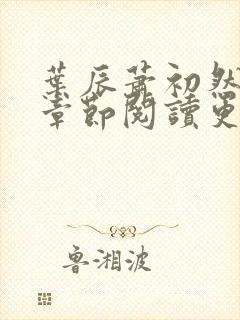 葉辰蕭初然
章節閱讀更
魯湘波